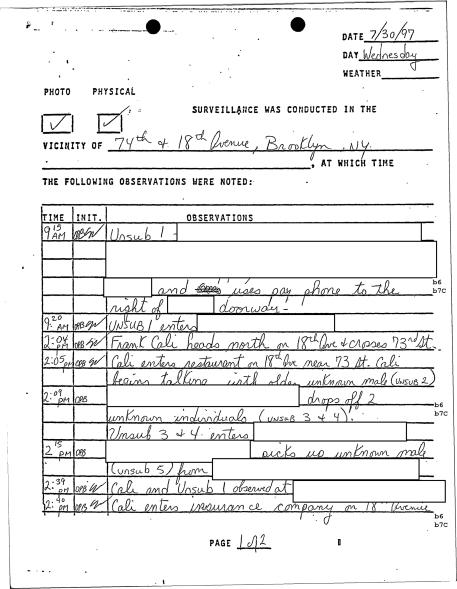 DATE 7/30/97
DAY Wednesday
WEATHER
PHOTO PHYSICAL
SURVEILLANCE WAS CONDUCTED IN THE
VICINITY OF 74th & 18th Avenue, Brooklyn NY.
, AT WHICH TIME
THE FOLLOWING OBSERVATIONS WERE NOTED:
TIME INIT. OBSERVATIONS
9:15 AM Unsub 1 -
b6
and uses pay phone to the
b7C
right of doorway -
9:20 AM UNSUB 1 enters
2:04 PM Frank Cali heads north on 18th Ave & crosses 73rd St.
2:05 pm Cali enters restaurant on 18th Ave near 73 St. Cali
begins talking with older unknown male (UNSUB 2)
2:09 pm drops off 2
b6
b7C
unknown individuals (UNSUB 3 & 4).
Unsub 3 & 4 enters
2:15 pm picks up unknown male
(unsub 5) from
2:39 pm Cali and Unsub 1 observed at
2:40 pm Cali enters insurance company on 18th Avenue
b6
b7C
PAGE 1 of 2